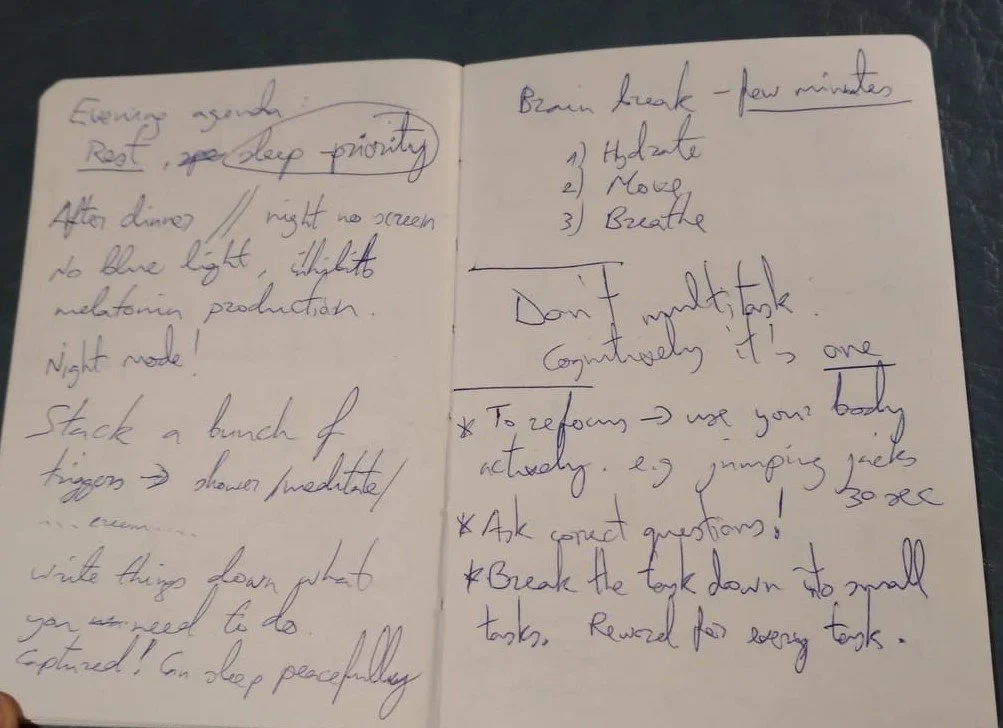 Evening agenda:
Rest, sleep - priority
After dinner // night no screen
No blue light, inhibits
melatonin production.
Night mode!
Stack a bunch of
triggers → shower/meditate/
write things down what
you need to do.
Captured! Can sleep peacefully
Brain break - few minutes
1) Hydrate
2) Move
3) Breathe
Don't multitask.
Cognitively it's one
* To refocus → use your body
actively. e.g jumping jacks
30 sec
* Ask correct questions!
* Break the task down into small
tasks. Reward for every task.